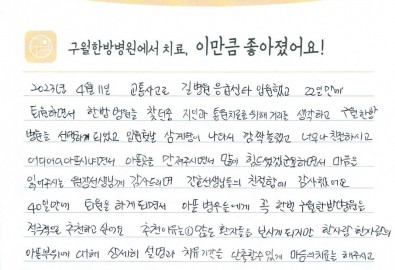 구월한방병원에서 치료, 이만큼 좋아졌어요!
2023년 4월 11일 교통사고로 길병원 응급실로 입원했고 22일만에
퇴원하면서 한방병원을 찾던중 지인과 통원치료를 위해 거리를 생각하고 구월한방
병원을 선택하게 되었고 입원첫날 삼계탕이 나와서 깜짝 놀랬고 너무나 친절하시고
어디어디 아프시냐면서 아픔을 만져주시면서 힘드셨겠군요하면서 마음을
읽어주시는 원장선생님께 감사드리며 간호선생님들의 친절함에 감사했어요
40일만에 퇴원을 하게 되면서 아픈 병우들에게 꼭 한번 구월한방병원을
적극적으로 추천하고 싶어요 추천이유는 ① 많은 환자들을 보시게 되지만 한사람 한사람의
아픈부위에 대해 상세히 설명과 치유기간을 단축할수 있게 마음의치료를 해주시고